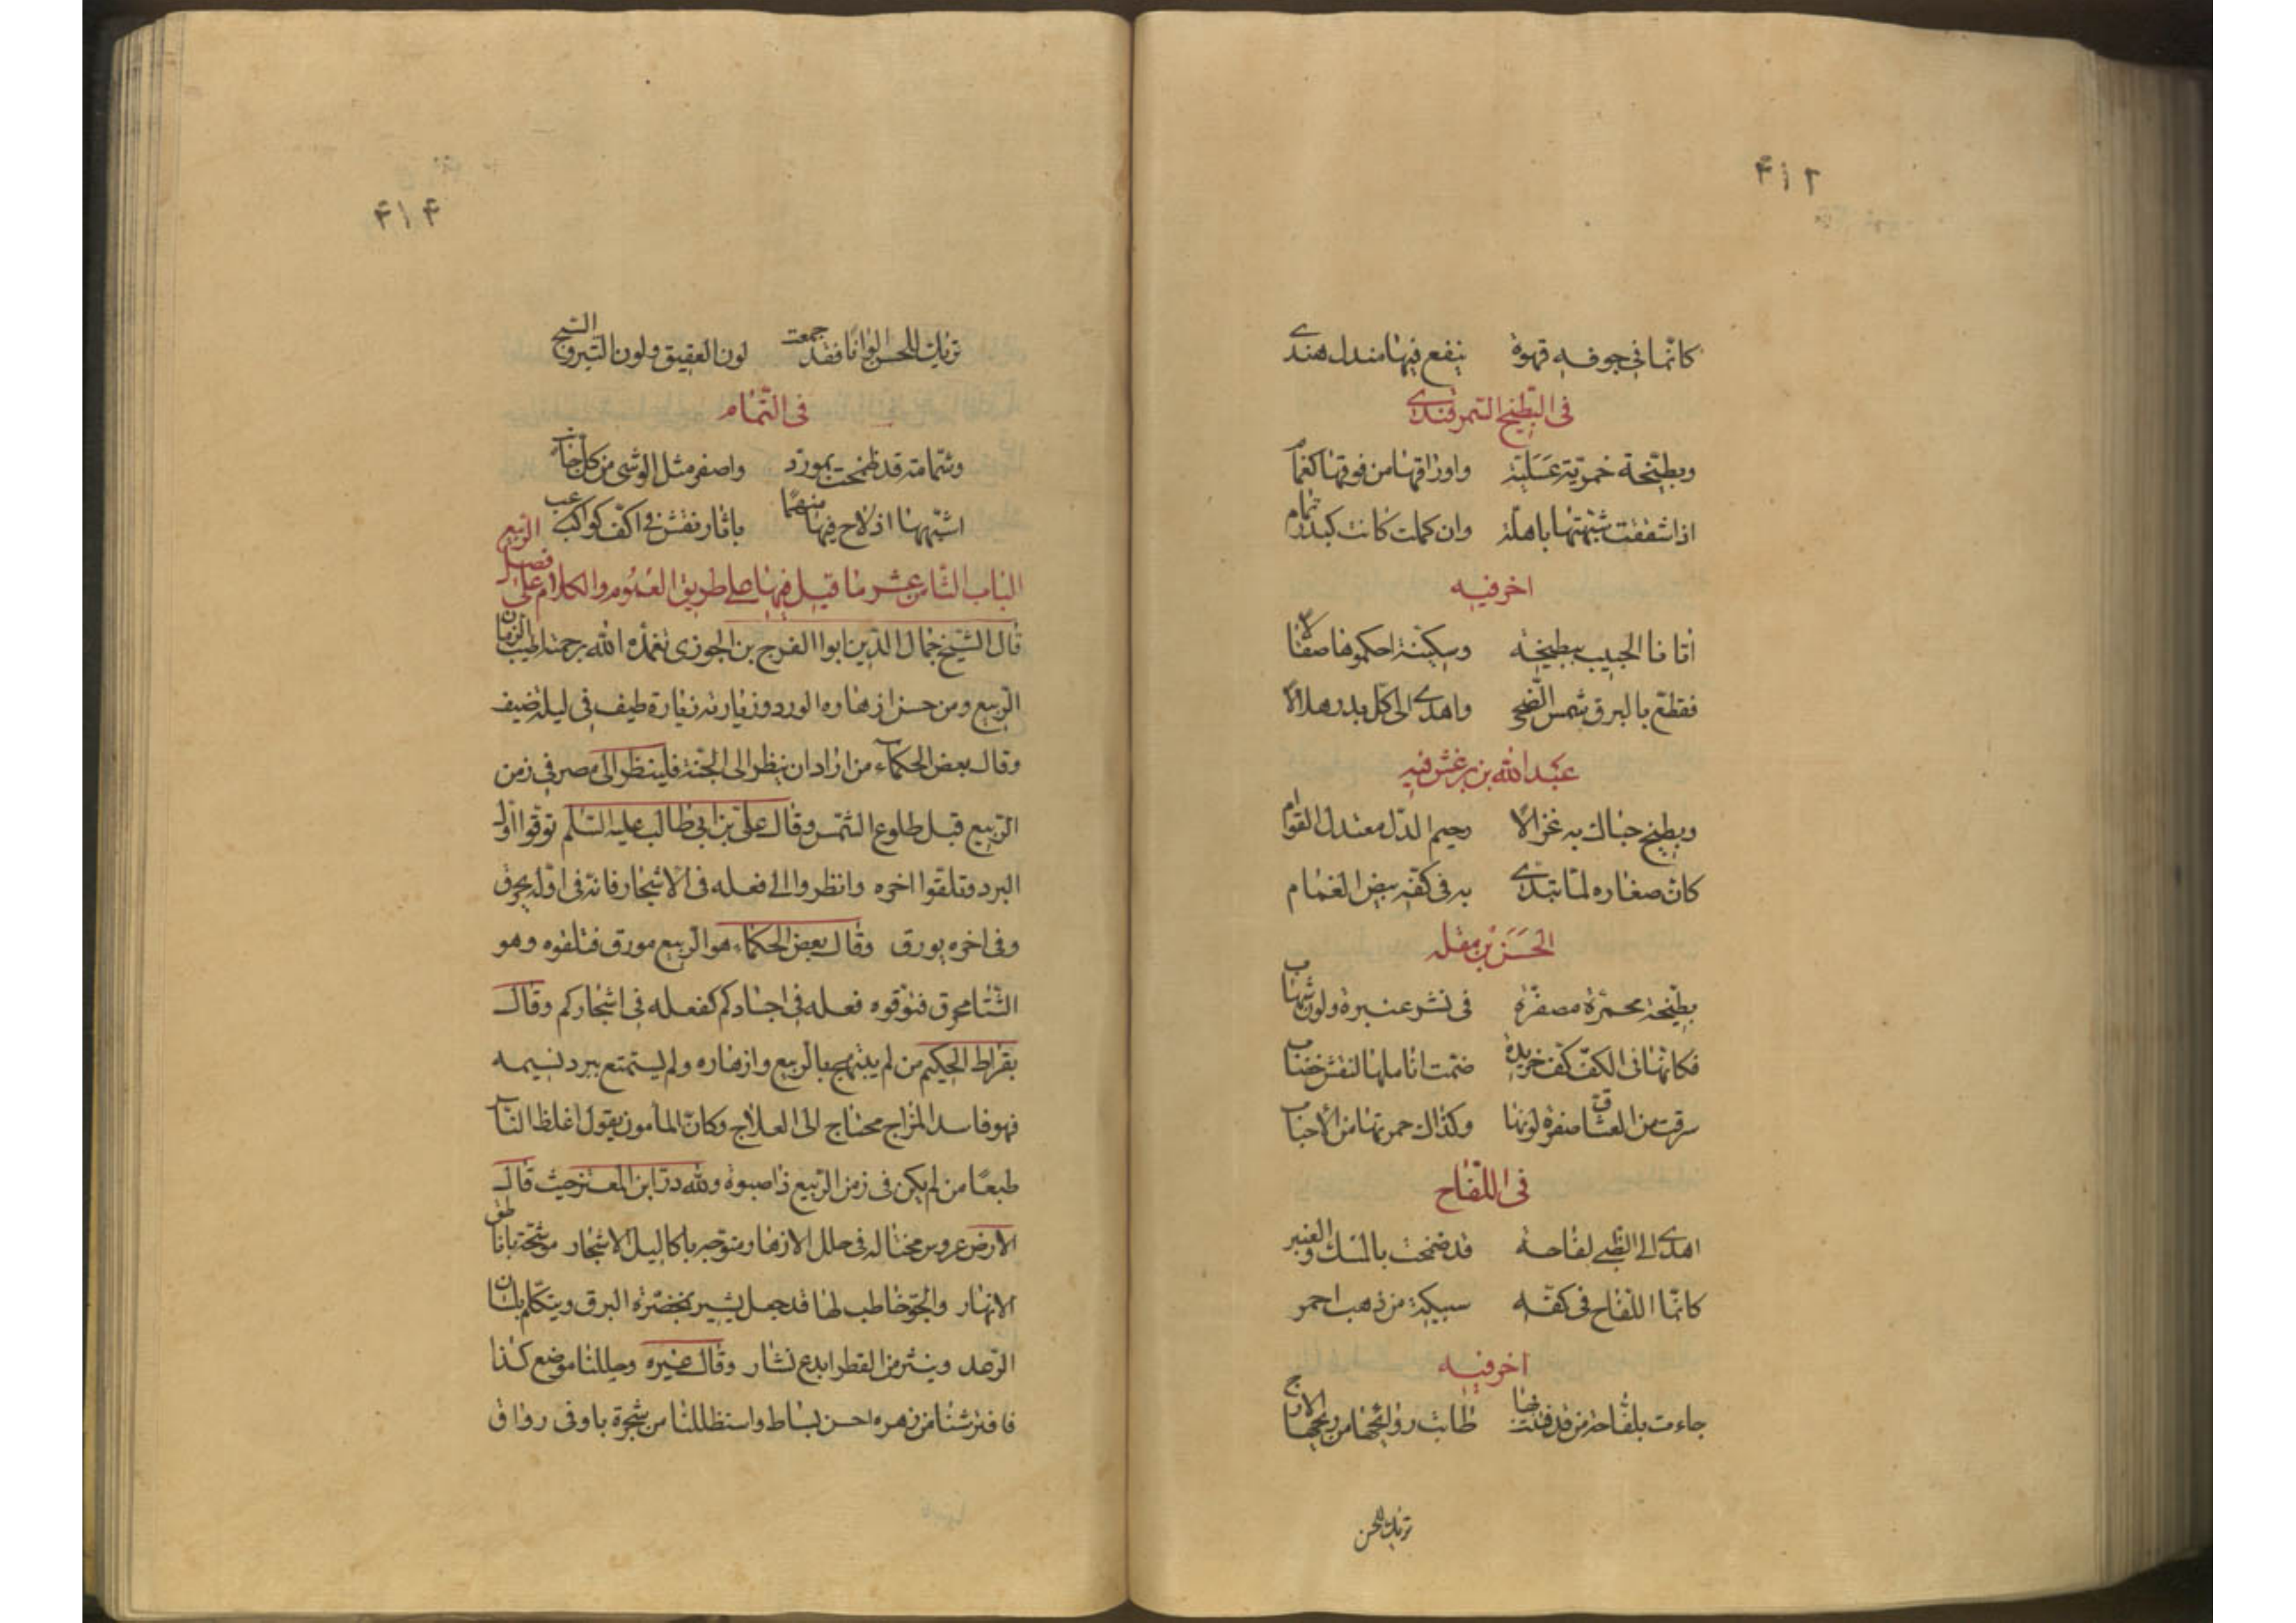 ۴۱۲
كانما في جوفه قهوة ينفع فيها مندل هندى
فى البطيخ السمرقندى
وبطيخة خمرية عسلية واوراقها من فوقها كغمام
اذا شققت شبهتها باهلة وان كملت كانت كبدر تمام
اخر فيه
اتانا الحبيب ببطيخة وسكينة احكموها صقالا
فقطع بالبرق شمس الضحى واهدى الى كل بدر هلالا
عبد الله بن برغش فيه
وبطيخ حباك به غزالا رحيم الدل معتدل القوام
كان صغاره لما تبدى به فى كفه بيض الغمام
الحسن بن مقله
بطيخة محمرة مصفرة فى نشر عنبرة ولون شهاب
فكانها فى الكف كف خريدة ضمت اناملها لنقش خضاب
سرقت من العشاق صفرة لونها وكذاك حمرتها من الأحباب
فى اللفاح
اهدى الى الظبى لفاحة قد ضمخت بالمسك والعنبر
كانما اللفاح فى كفه سبيكة من ذهب احمر
اخر فيه
جاءت بلفاحة من قد فتنت بها طابت روائحها من ريحها الارج
تريك للحسن
۴۱۴
تريك للحسن الوانا فقد جمعت لون العقيق ولون التبر والسبج
فى الشمام
وشمامة قد ضمخت بمورد واصفر مثل الوشى من كل جانب
اشبهها اذ لاح فيها منمنما باثار نقش فى اكف كواعب
الباب الثامن عشر ما قيل فيها على طريق العموم والكلام على فصل الربيع
قال الشيخ جمال الدين ابوا الفرج بن الجوزى تغمده الله برحمته اطيب الزمان
الربيع ومن حسن ازهاره الورد وزيارته زيارة طيف فى ليلة ضيف
وقال بعض الحكماء من اراد ان ينظر الى الجنة فلينظر الى مصر فى زمن
الربيع قبل طلوع الشمس وقال على بن ابى طالب عليه السلم توقوا اول
البرد وتلقوا اخره وانظروا الى فعله فى الاشجار فانه فى اوله يحرق
وفى اخره يورق وقال بعض الحكماء هو الربيع مورق فتلقوه وهو
الشتا محرق فتوقوه فعله فى اجسادكم كفعله فى اشجاركم وقال
بقراط الحكيم من لم يبتهج بالربيع وازهاره ولم يستمتع ببرد نسيمه
فهو فاسد المزاج محتاج الى العلاج وكان المأمون يقول اغلظ الناس
طبعا من لم يكن فى زمن الربيع ذا صبوة ولله در ابن المعتز حيث قال
الارض عروس مختالة فى حلل الازهار متوجه باكاليل الاشجار موشحة بمناطق
الانهار والجو خاطب لها قد جعل يشير بمخصرة البرق ويتكلم بلسان
الرعد وينثر من القطر ابدع نثار وقال غيره وحللنا موضع كذا
فافترشنا من زهره احسن بساط واستظللنا من شجرة باوفى رواق